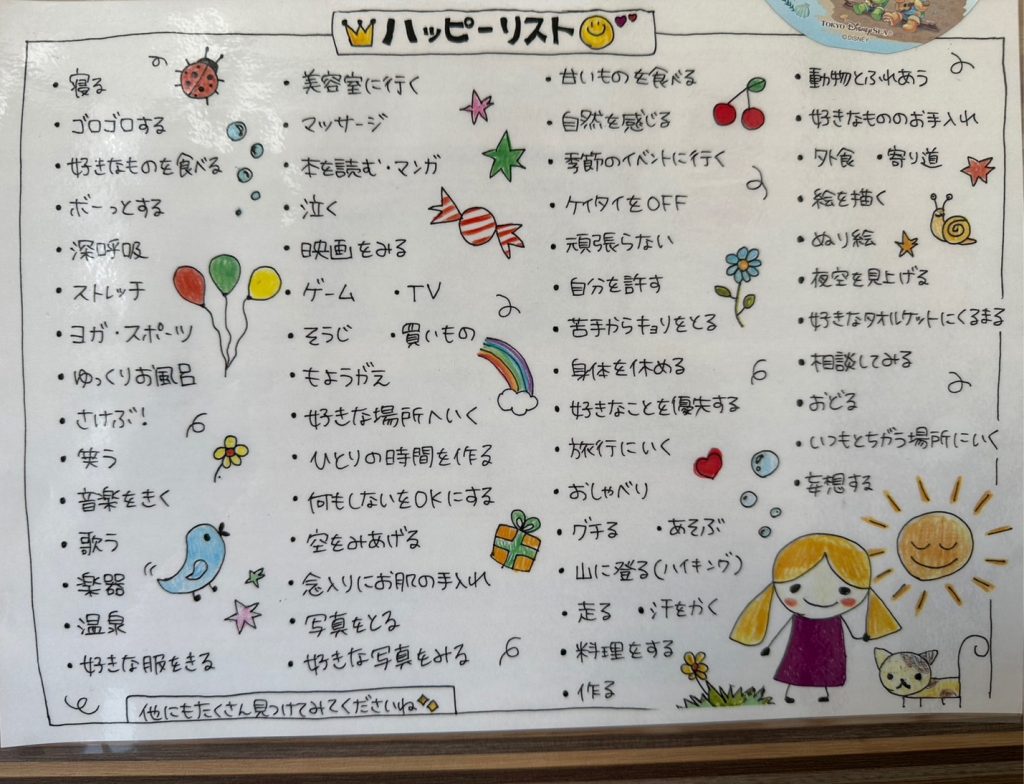 ハッピーリスト
TOKYO DisneySEA
©DISNEY
・寝る
・ゴロゴロする
・好きなものを食べる
・ボーっとする
・深呼吸
・ストレッチ
・ヨガ・スポーツ
・ゆっくりお風呂
・さけぶ!
・笑う
・音楽をきく
・歌う
・楽器
・温泉
・好きな服をきる
・美容室に行く
・マッサージ
・本を読む・マンガ
・泣く
・映画をみる
・ゲーム ・TV
・そうじ ・買いもの
・もようがえ
・好きな場所へいく
・ひとりの時間を作る
・何もしないをOKにする
・空をみあげる
・念入りにお肌の手入れ
・写真をとる
・好きな写真をみる
・甘いものを食べる
・自然を感じる
・季節のイベントに行く
・ケイタイをOFF
・頑張らない
・自分を許す
・苦手からキョリをとる
・身体を休める
・好きなことを優先する
・旅行にいく
・おしゃべり
・グチる ・あそぶ
・山に登る(ハイキング)
・走る ・汗をかく
・料理をする
・作る
・動物とふれあう
・好きなもののお手入れ
・外食 ・寄り道
・絵を描く
・ぬり絵
・夜空を見上げる
・好きなタオルケットにくるまる
・相談してみる
・おどる
・いつもとちがう場所にいく
・妄想する
他にもたくさん見つけてみてくださいね